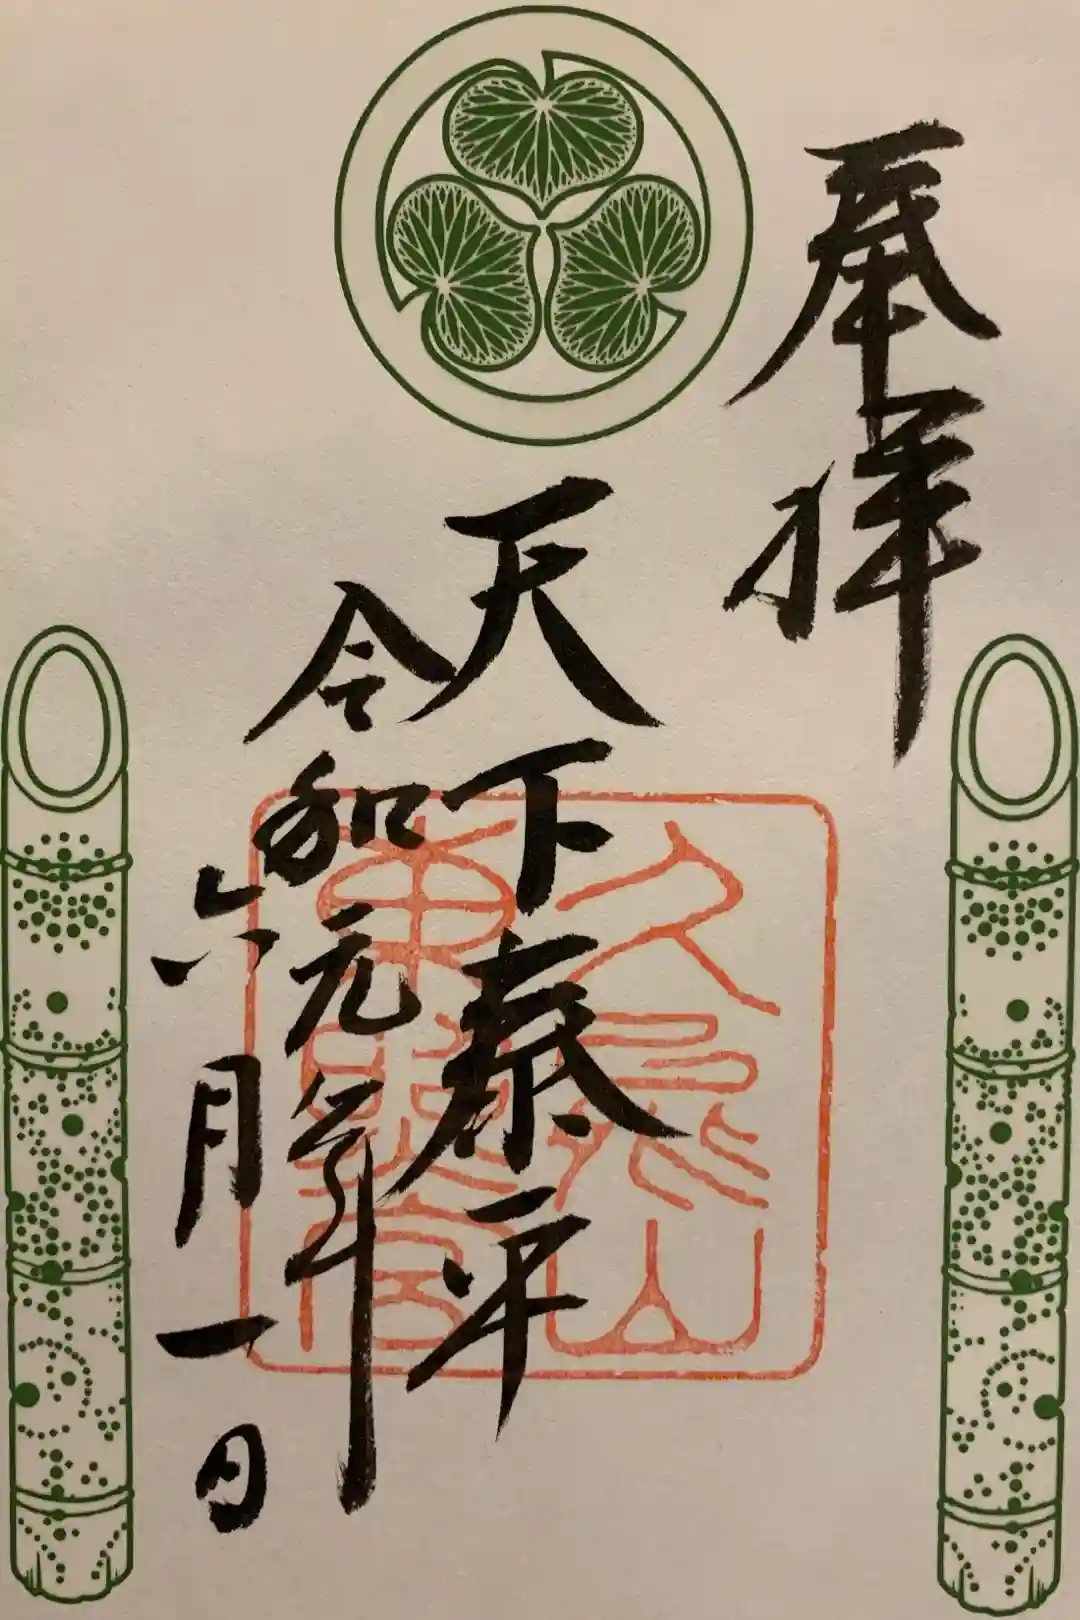 奉拝
天下泰平
令和元年
六月一日
久能山
東照宮